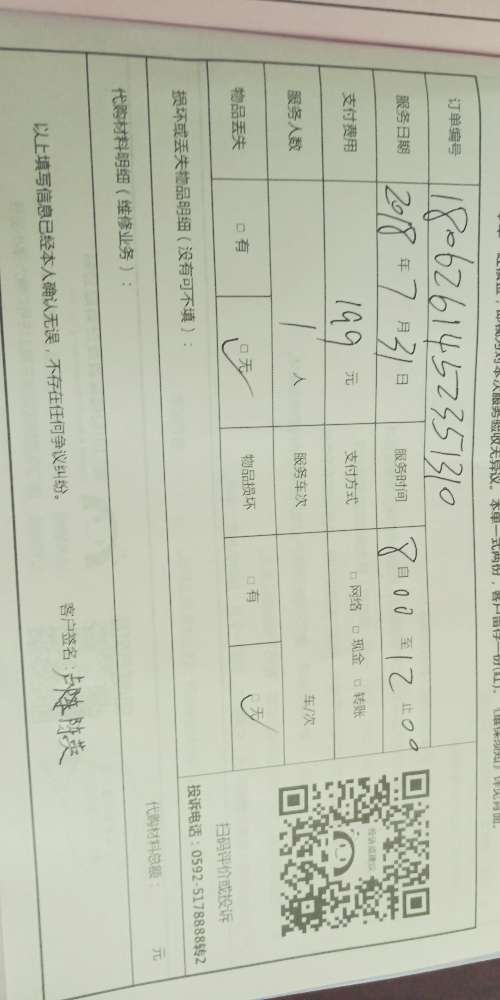 订单编号 18062614522351310
服务日期 2018 年 7 月 31 日 服务时间 8 自 00 至 12 止 00
支付费用 199 元 支付方式 □ 网络 □ 现金 □ 转账
服务人数 1 人 服务车次 车/次
物品丢失 □ 有 □ 无 物品损坏 □ 有 □ 无
损坏或丢失物品明细（没有可不填）：
代购材料明细（维修业务）： 代购材料总额： 元
以上填写信息已经本人确认无误，不存在任何争议纠纷。
客户签名：
投诉或建议
扫码评价或投诉
投诉电话：0592-5178888转2